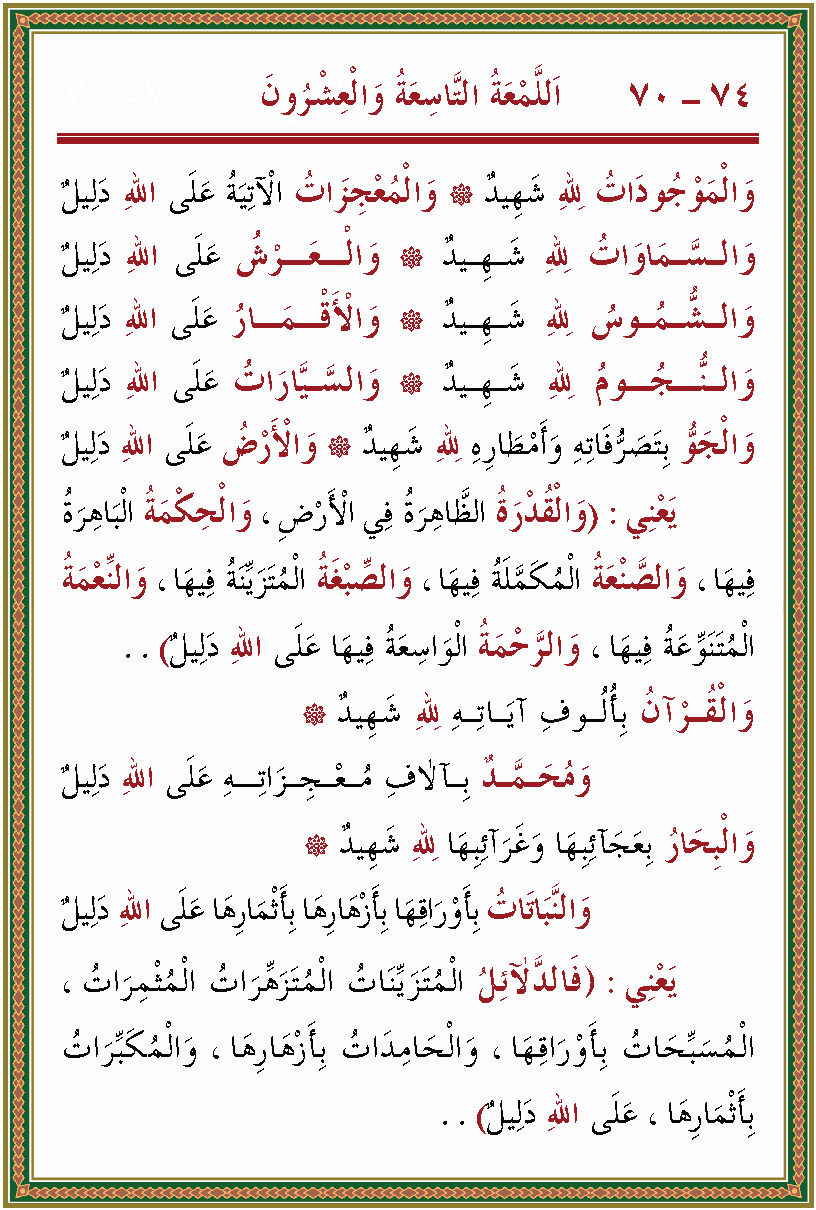 ٧٤ – ٧٠ اَللَّمْعَةُ التَّاسِعَةُ وَالْعِشْرُونَ
وَالْمَوْجُودَاتُ لِلّٰهِ شَهِيدٌ ۞ وَالْمُعْجِزَاتُ الْآتِيَةُ عَلَى اللهِ دَلِيلٌ
وَالسَّمَاوَاتُ لِلّٰهِ شَهِيدٌ ۞ وَالْعَرْشُ عَلَى اللهِ دَلِيلٌ
وَالشُّمُوسُ لِلّٰهِ شَهِيدٌ ۞ وَالْأَقْمَارُ عَلَى اللهِ دَلِيلٌ
وَالنُّجُومُ لِلّٰهِ شَهِيدٌ ۞ وَالسَّيَّارَاتُ عَلَى اللهِ دَلِيلٌ
وَالْجَوُّ بِتَصَرُّفَاتِهِ وَأَمْطَارِهِ لِلّٰهِ شَهِيدٌ ۞ وَالْأَرْضُ عَلَى اللهِ دَلِيلٌ
يَعْنِي : (وَالْقُدْرَةُ الظَّاهِرَةُ فِي الْأَرْضِ ، وَالْحِكْمَةُ الْبَاهِرَةُ
فِيهَا ، وَالصَّنْعَةُ الْمُكَمَّلَةُ فِيهَا ، وَالصِّبْغَةُ الْمُتَزَيِّنَةُ فِيهَا ، وَالنِّعْمَةُ
الْمُتَنَوِّعَةُ فِيهَا ، وَالرَّحْمَةُ الْوَاسِعَةُ فِيهَا عَلَى اللهِ دَلِيلٌ) . .
وَالْقُرْآنُ بِأُلُوفِ آيَاتِهِ لِلّٰهِ شَهِيدٌ ۞
وَمُحَمَّدٌ بِآلَافِ مُعْجِزَاتِهِ عَلَى اللهِ دَلِيلٌ
وَالْبِحَارُ بِعَجَآئِبِهَا وَغَرَآئِبِهَا لِلّٰهِ شَهِيدٌ ۞
وَالنَّبَاتَاتُ بِأَوْرَاقِهَا بِأَزْهَارِهَا بِأَثْمَارِهَا عَلَى اللهِ دَلِيلٌ
يَعْنِي : (فَالدَّلَآئِلُ الْمُتَزَيِّنَاتُ الْمُتَزَهِّرَاتُ الْمُثْمِرَاتُ ،
الْمُسَبِّحَاتُ بِأَوْرَاقِهَا ، وَالْحَامِدَاتُ بِأَزْهَارِهَا ، وَالْمُكَبِّرَاتُ
بِأَثْمَارِهَا ، عَلَى اللهِ دَلِيلٌ) . .